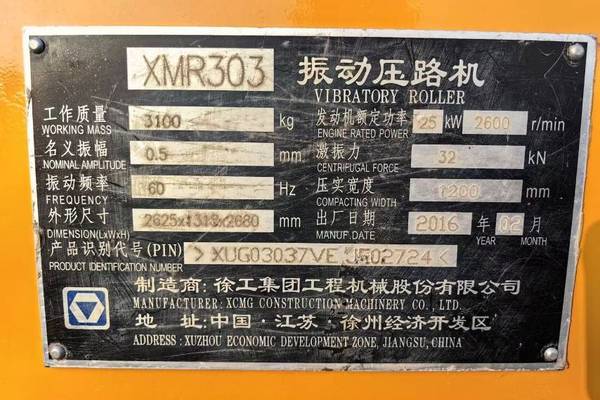 XMR303 振动压路机
VIBRATORY ROLLER
工作质量 3100 kg 发动机额定功率 25 kW 2600 r/min
WORKING MASS ENGINE RATED POWER
名义振幅 0.5 mm 激振力 32 kN
NOMINAL AMPLITUDE CENTRIFUGAL FORCE
振动频率 60 Hz 压实宽度 1200 mm
FREQUENCY COMPACTING WIDTH
外形尺寸 2625x1313x2680 mm 出厂日期 2016 年 02 月
DIMENSION(LxWxH) MANUF.DATE YEAR MONTH
产品识别代号(PIN) > XUG03037VE J502724 <
PRODUCT IDENTIFICATION NUMBER
制造商: 徐工集团工程机械股份有限公司
MANUFACTURER: XCMG CONSTRUCTION MACHINERY CO., LTD.
地 址: 中国·江苏·徐州经济开发区
ADDRESS: XUZHOU ECONOMIC DEVELOPMENT ZONE, JIANGSU, CHINA